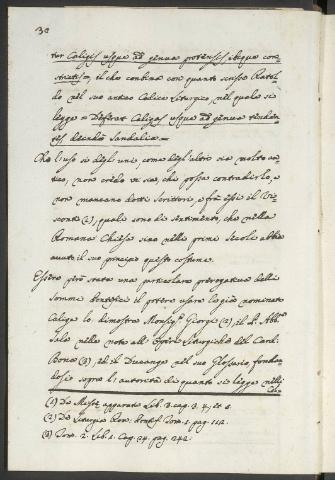 30
tur Caligis usque ad genua protensis ibique con-
strictis=, il che combina con quanto scrisse Ratol-
do nel suo antico Codice Liturgico, nel quale si
legge = Deferat Caligas usque ad genua tenden-
tes deinde Sandalia=
Che l'uso sì degli uni, come degl'altri sia molto an-
tico, non credo vi sia, chi possa contradirlo, e
non mancano dotti Scrittori, e frà essi il Vis-
conti (1), quali sono di sentimento, che nella
Romana Chiesa sino nelli primi Secoli abbia
avuto il suo principio questo costume.
Essere però stata una particolare prerogativa delli
Sommi Pontefici il potere usare le già nominate
Caliga lo dimostra Monsigr. Giorgi (2), il P. Abbe
Sala nelle note all'Opere Liturgiche del Card.
Bona (3), ed il Ducange nel suo Glossario, fondan-
dosi sopra l'autorità di quanto si legge nelli
(1) De Missæ apparatu Lib. 3. cap. 3. 4. et
(2) De Liturgia Rom. Pontif. Tom. 1. pag. 112.
(3) Tom. 2. Lib. 1. Cap. 24. pag. 242.